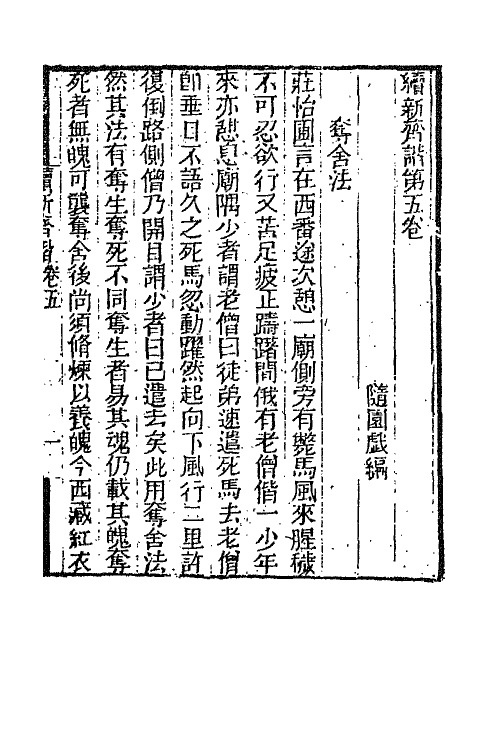 續新齊諧第五卷
隨園戲編
奪舍法
莊怡園言在西番途次憩一廟側旁有斃馬風來腥穢
不可忍欲行又苦足疲正躊躇間俄有老僧偕一少年
來亦憩息廟隅少者謂老僧曰徒弟速遣死馬去老僧
卽垂目不語久之死馬忽動躍然起向下風行二里許
復倒路側僧乃開目謂少者曰已遣去矣此用奪舍法
然其法有奪生奪死不同奪生者易其魂仍載其魄奪
死者無魄可襲奪舍後尚須脩煉以養魄今西藏紅衣
續新齊諧卷五 一